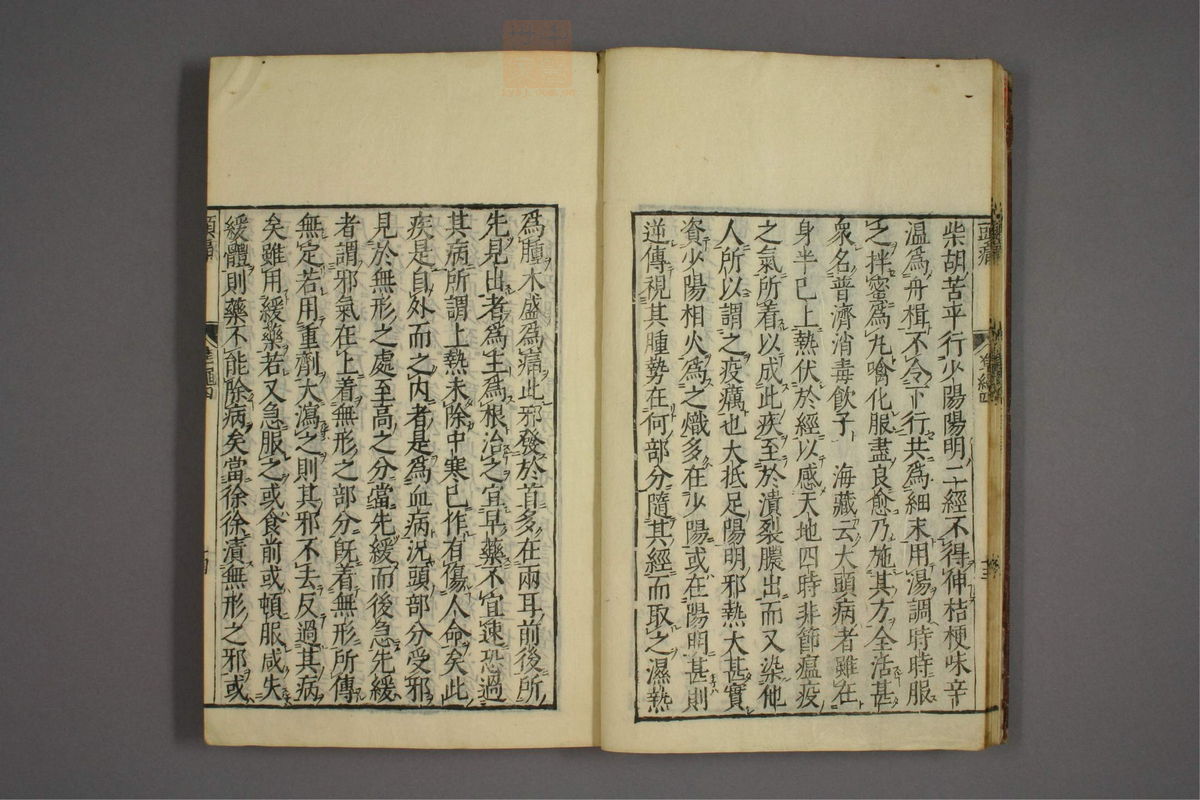 柴胡苦平行少陽陽明二經不得伸桔梗味辛
温爲舟楫不令下行共爲細末用湯調時時服
之拌蜜爲丸噙化服盡良愈乃施其方全活甚
衆名普濟消毒飲子 海藏云大頭病者雖在
身半已上熱伏於經以感天地四時非節瘟疫
之氣所着以成此疾至於潰裂膿出而又染他
人所以謂之疫癘也大抵足陽明邪熱太甚實
資少陽相火爲之熾多在少陽或在陽明甚則
逆傳視其腫勢在何部分隨其經而取之濕熱
頭痛
十三
爲腫木盛爲痛此邪發於首多在兩耳前後所
先見出者爲主爲根治之宜早藥不宜速恐過
其病所謂上熱未除中寒已作有傷人命矣此
疾是自外而之内者是爲血病况頭部分受邪
見於無形之處至高之分當先緩而後急先緩
者謂邪氣在上着無形之部分旣着無形所傳
無定若用重劑大瀉之則其邪不去反過其病
矣雖用緩藥若又急服之或食前或頓服咸失
緩體則藥不能除病矣當徐徐漬無形之邪或